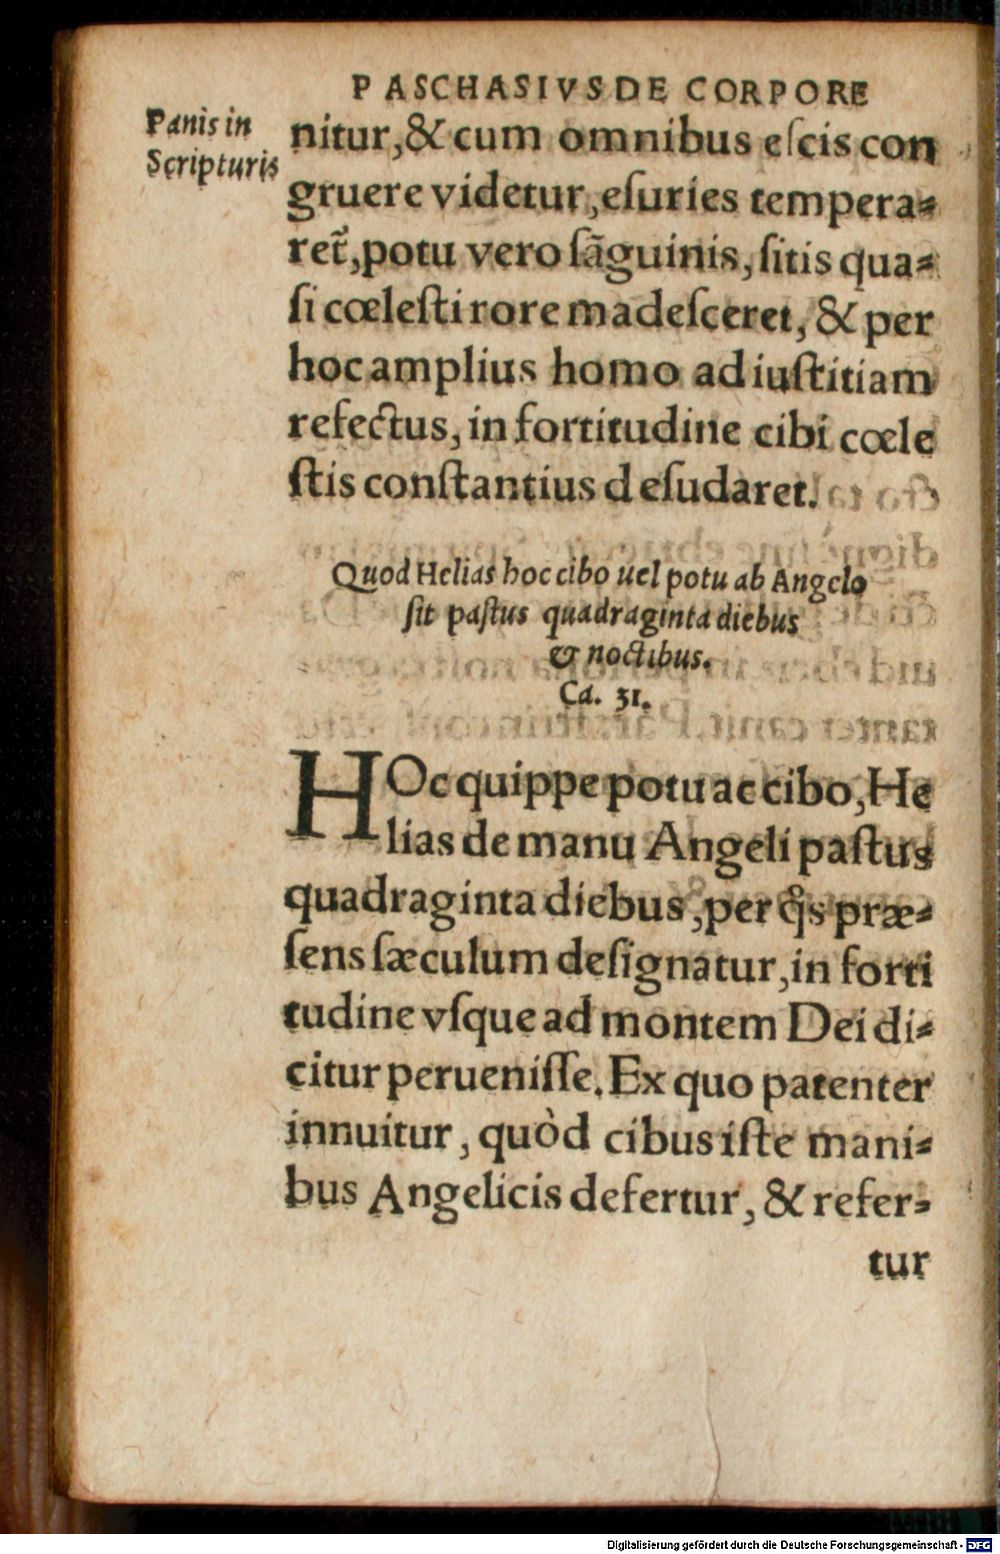 PASCHASIVS DE CORPORE
Panis in
Scripturis
nitur, & cum omnibus eſcis con
gruere videtur, eſuries tempera⸗
ret̃, potu vero ſãguinis, ſitis qua⸗
ſi cœleſti rore madeſceret, & per
hoc amplius homo ad iuſtitiam
refectus, in fortitudine cibi cœle
ſtis conſtantius deſudaret.
Quod Helias hoc cibo uel potu ab Angelo
ſit paſtus quadraginta diebus
& noctibus.
Ca. 31.
HOc quippe potu ac cibo, He
lias de manu Angeli paſtus
quadraginta diebus, per q̊s præ⸗
ſens ſæculum deſignatur, in forti
tudine vſque ad montem Dei di⸗
citur perueniſſe. Ex quo patenter
innuitur, quòd cibus iſte mani⸗
bus Angelicis defertur, & refer⸗
tur
Digitalisierung gefördert durch die Deutsche Forschungsgemeinschaft - DFG